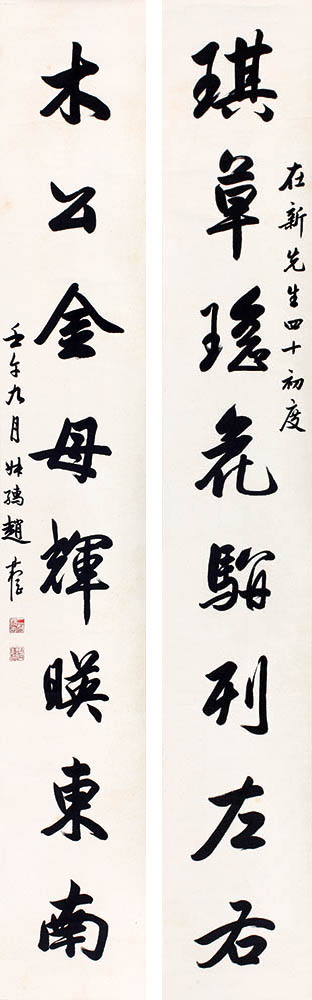 在新先生四十初度
琪草瑤花駢列左右
木公金母輝暎東南
壬午九月叔孺趙